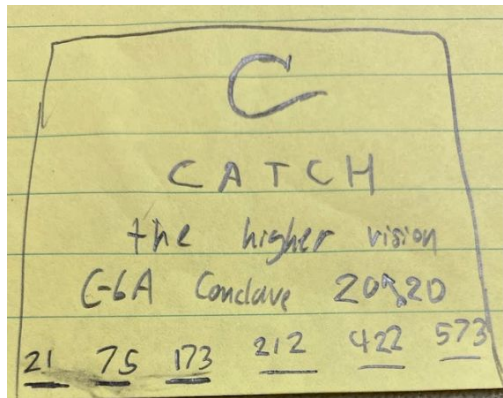 C
CATCH
the higher vision
C-6A Conclave 2020
21 75 173 212 422 573